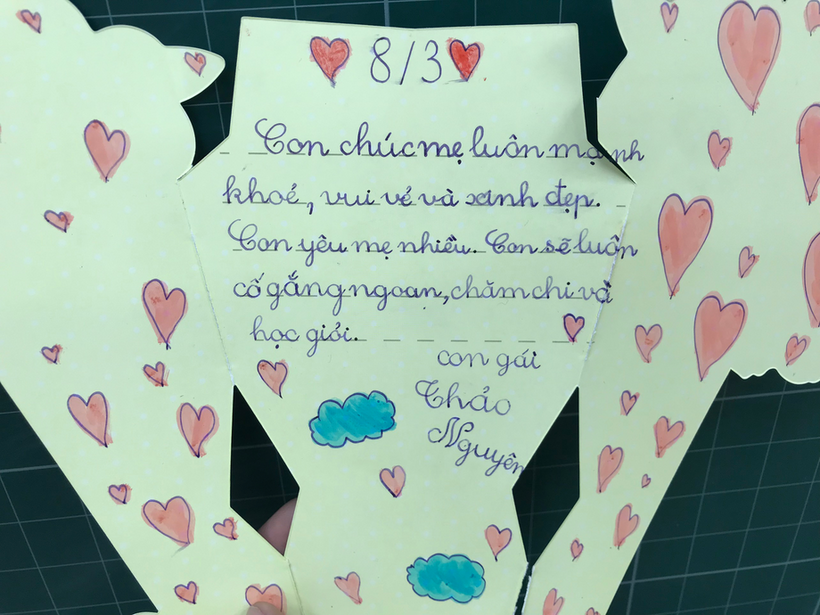 8/3
Con chúc mẹ luôn mạnh
khoẻ, vui vẻ và xinh đẹp.
Con yêu mẹ nhiều. Con sẽ luôn
cố gắng ngoan, chăm chỉ và
học giỏi.
con gái
Thảo
Nguyên